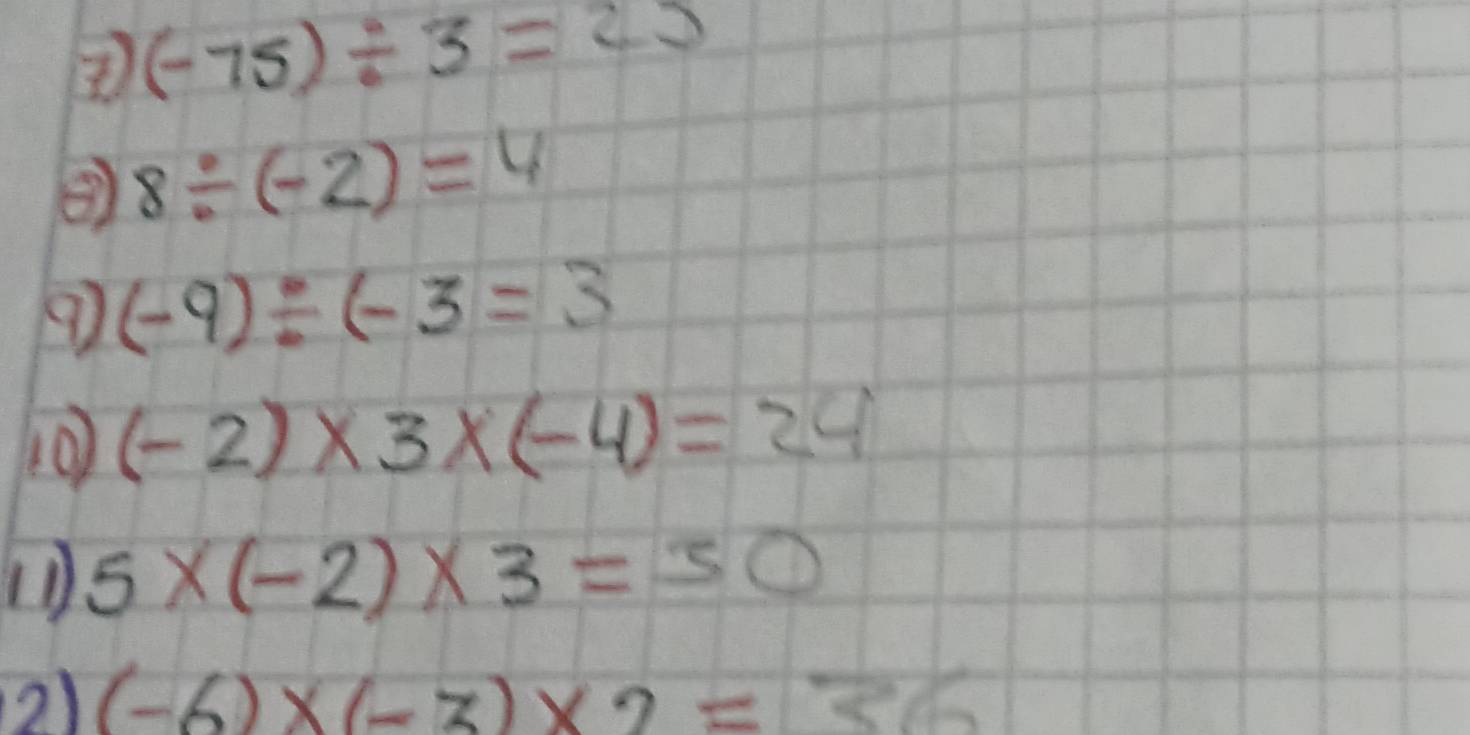 7) (-75) ÷ 3 = 25
8) 8 ÷ (-2) = 4
9) (-9) ÷ (-3 = 3
10) (-2) × 3 × (-4) = 24
11) 5 × (-2) × 3 = 30
12) (-6) × (-3) × 2 = 36